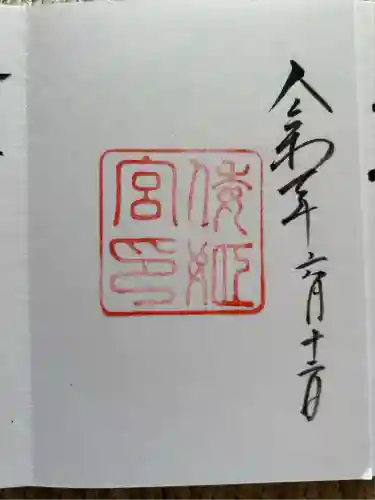 令和年六月十二日
倭姫
宮印